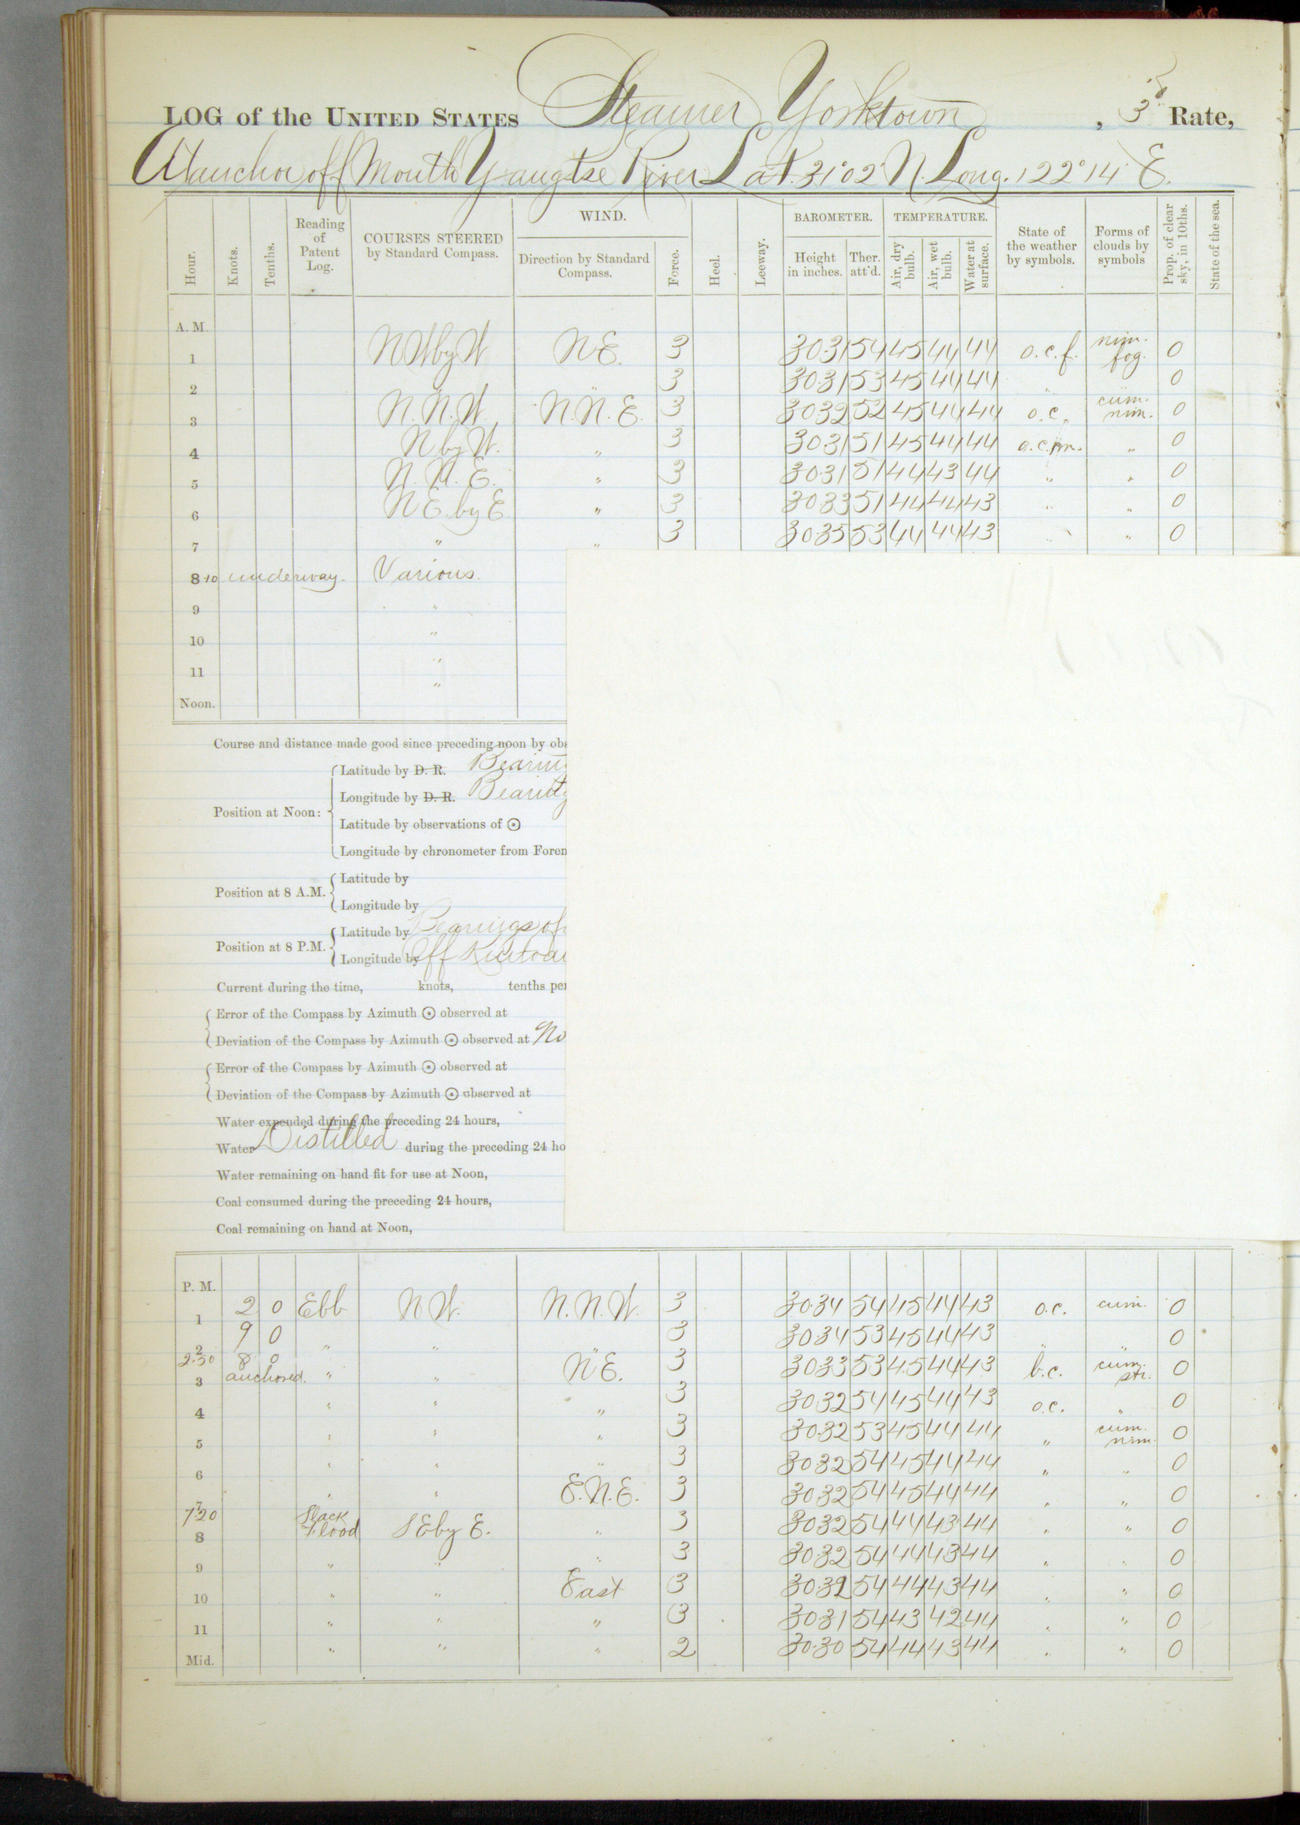 LOG of the UNITED STATES Steamer Yorktown, 3d Rate,
At anchor off Mouth Yangtze River Lat. 31°02' N. Long. 122°14' E.
Hour. Knots. Tenths. Reading of Patent Log. COURSES STEERED by Standard Compass. WIND. Direction by Standard Compass. Force. Heel. Leeway. BAROMETER. Height in inches. Ther. att'd. TEMPERATURE. Air, dry bulb. Air, wet bulb. Water at surface. State of the weather by symbols. Forms of clouds by symbols Prop. of clear sky, in 10ths. State of the sea.
A. M.
1 NW by W N.E. 3 30.31 54 45 44 44 o.c.f. nim. fog. 0
2 3 30.31 53 45 44 44 " 0
3 N.N.W. N.N.E. 3 30.32 52 45 44 44 o.c. cum. nim. 0
4 N by W. " 3 30.31 51 45 44 44 o.c.m. " 0
5 N.N.E. " 3 30.31 51 44 43 44 " " 0
6 NE. by E " 3 30.33 51 44 44 43 " " 0
7 " " 3 30.35 53 44 44 43 " " 0
8 10 underway. Various.
9 "
10 "
11 "
Noon. "
Course and distance made good since preceding noon by obs
Position at Noon:
Latitude by D. R. Bearing
Longitude by D. R. Bearing
Latitude by observations of ☉
Longitude by chronometer from Foren
Position at 8 A.M.
Latitude by
Longitude by
Position at 8 P.M.
Latitude by Bearings of
Longitude by Off
Current during the time, knots, tenths per
Error of the Compass by Azimuth ☉ observed at
Deviation of the Compass by Azimuth ☉ observed at No
Error of the Compass by Azimuth ☉ observed at
Deviation of the Compass by Azimuth ☉ observed at
Water expended during the preceding 24 hours,
Water Distilled during the preceding 24 ho
Water remaining on hand fit for use at Noon,
Coal consumed during the preceding 24 hours,
Coal remaining on hand at Noon,
P. M.
1 2 0 Ebb N.W. N.N.W. 3 30.34 54 45 44 43 o.c. cum. 0
2 9 0 " " " 3 30.34 53 45 44 43 " " 0
2.50 8 0
3 anchored. " " N.E. 3 30.33 53 45 44 43 b.c. cum. str. 0
4 " " " 3 30.32 54 45 44 43 o.c. " 0
5 " " " 3 30.32 53 45 44 44 " cum. nim. 0
6 " " " 3 30.32 54 45 44 44 " " 0
7 " " E.N.E. 3 30.32 54 45 44 44 " " 0
7.20 Slack
8 Flood SE by E. " 3 30.32 54 44 43 44 " " 0
9 " " " 3 30.32 54 44 43 44 " " 0
10 " " East 3 30.32 54 44 43 44 " " 0
11 " " " 3 30.31 54 43 42 44 " " 0
Mid. " " " 2 30.30 54 44 43 44 " " 0